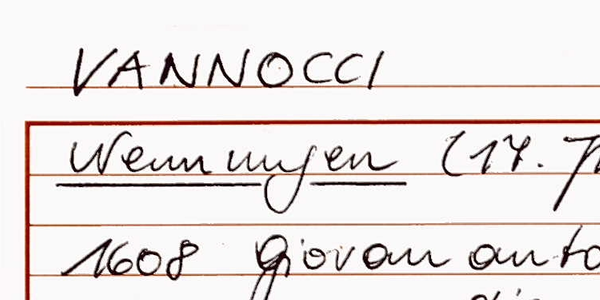 VANNOCCI
Wennungen (17. Jh
1608 Giovan anto